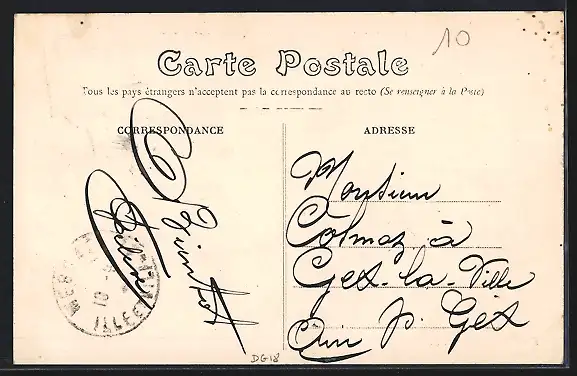 10
Carte Postale
Tous les pays étrangers n'acceptent pas la correspondance au recto (Se renseigner à la Poste)
CORRESPONDANCE
A Bientot
ADRESSE
Monsieur
Colmaz à
Gex-la-Ville
Ain p. Gex
DG18